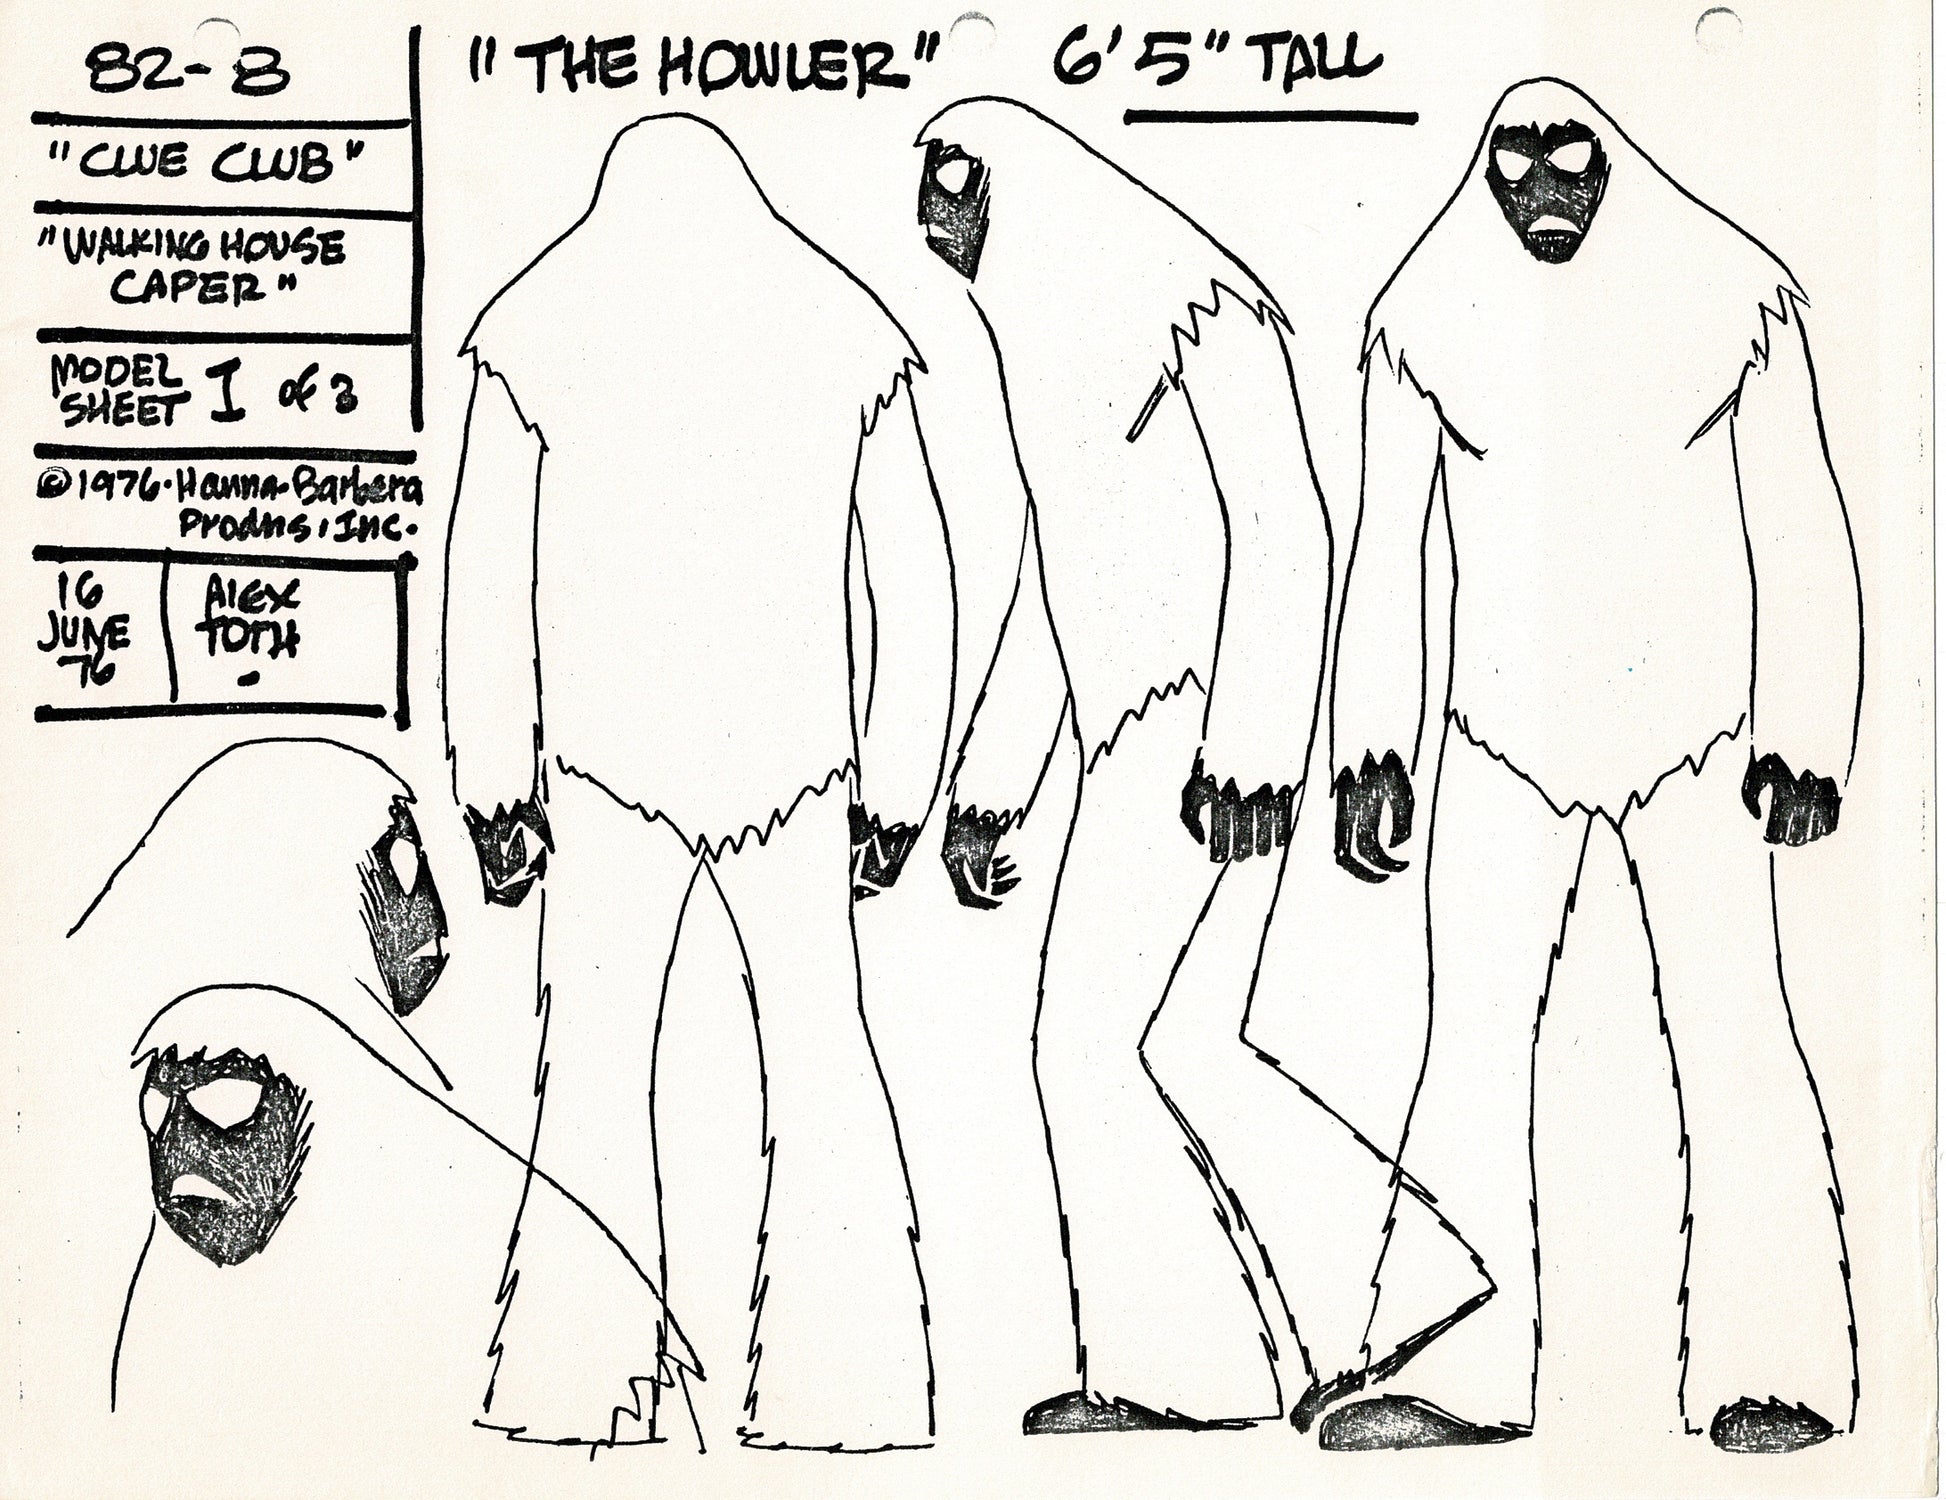 82-8
"CLUE CLUB"
"WALKING HOUSE
CAPER"
MODEL
SHEET 1 of 3
©1976·Hanna-Barbera
Prodns, Inc.
16
JUNE
76
AlEX
TOTH
"THE HOWLER" 6'5" TALL